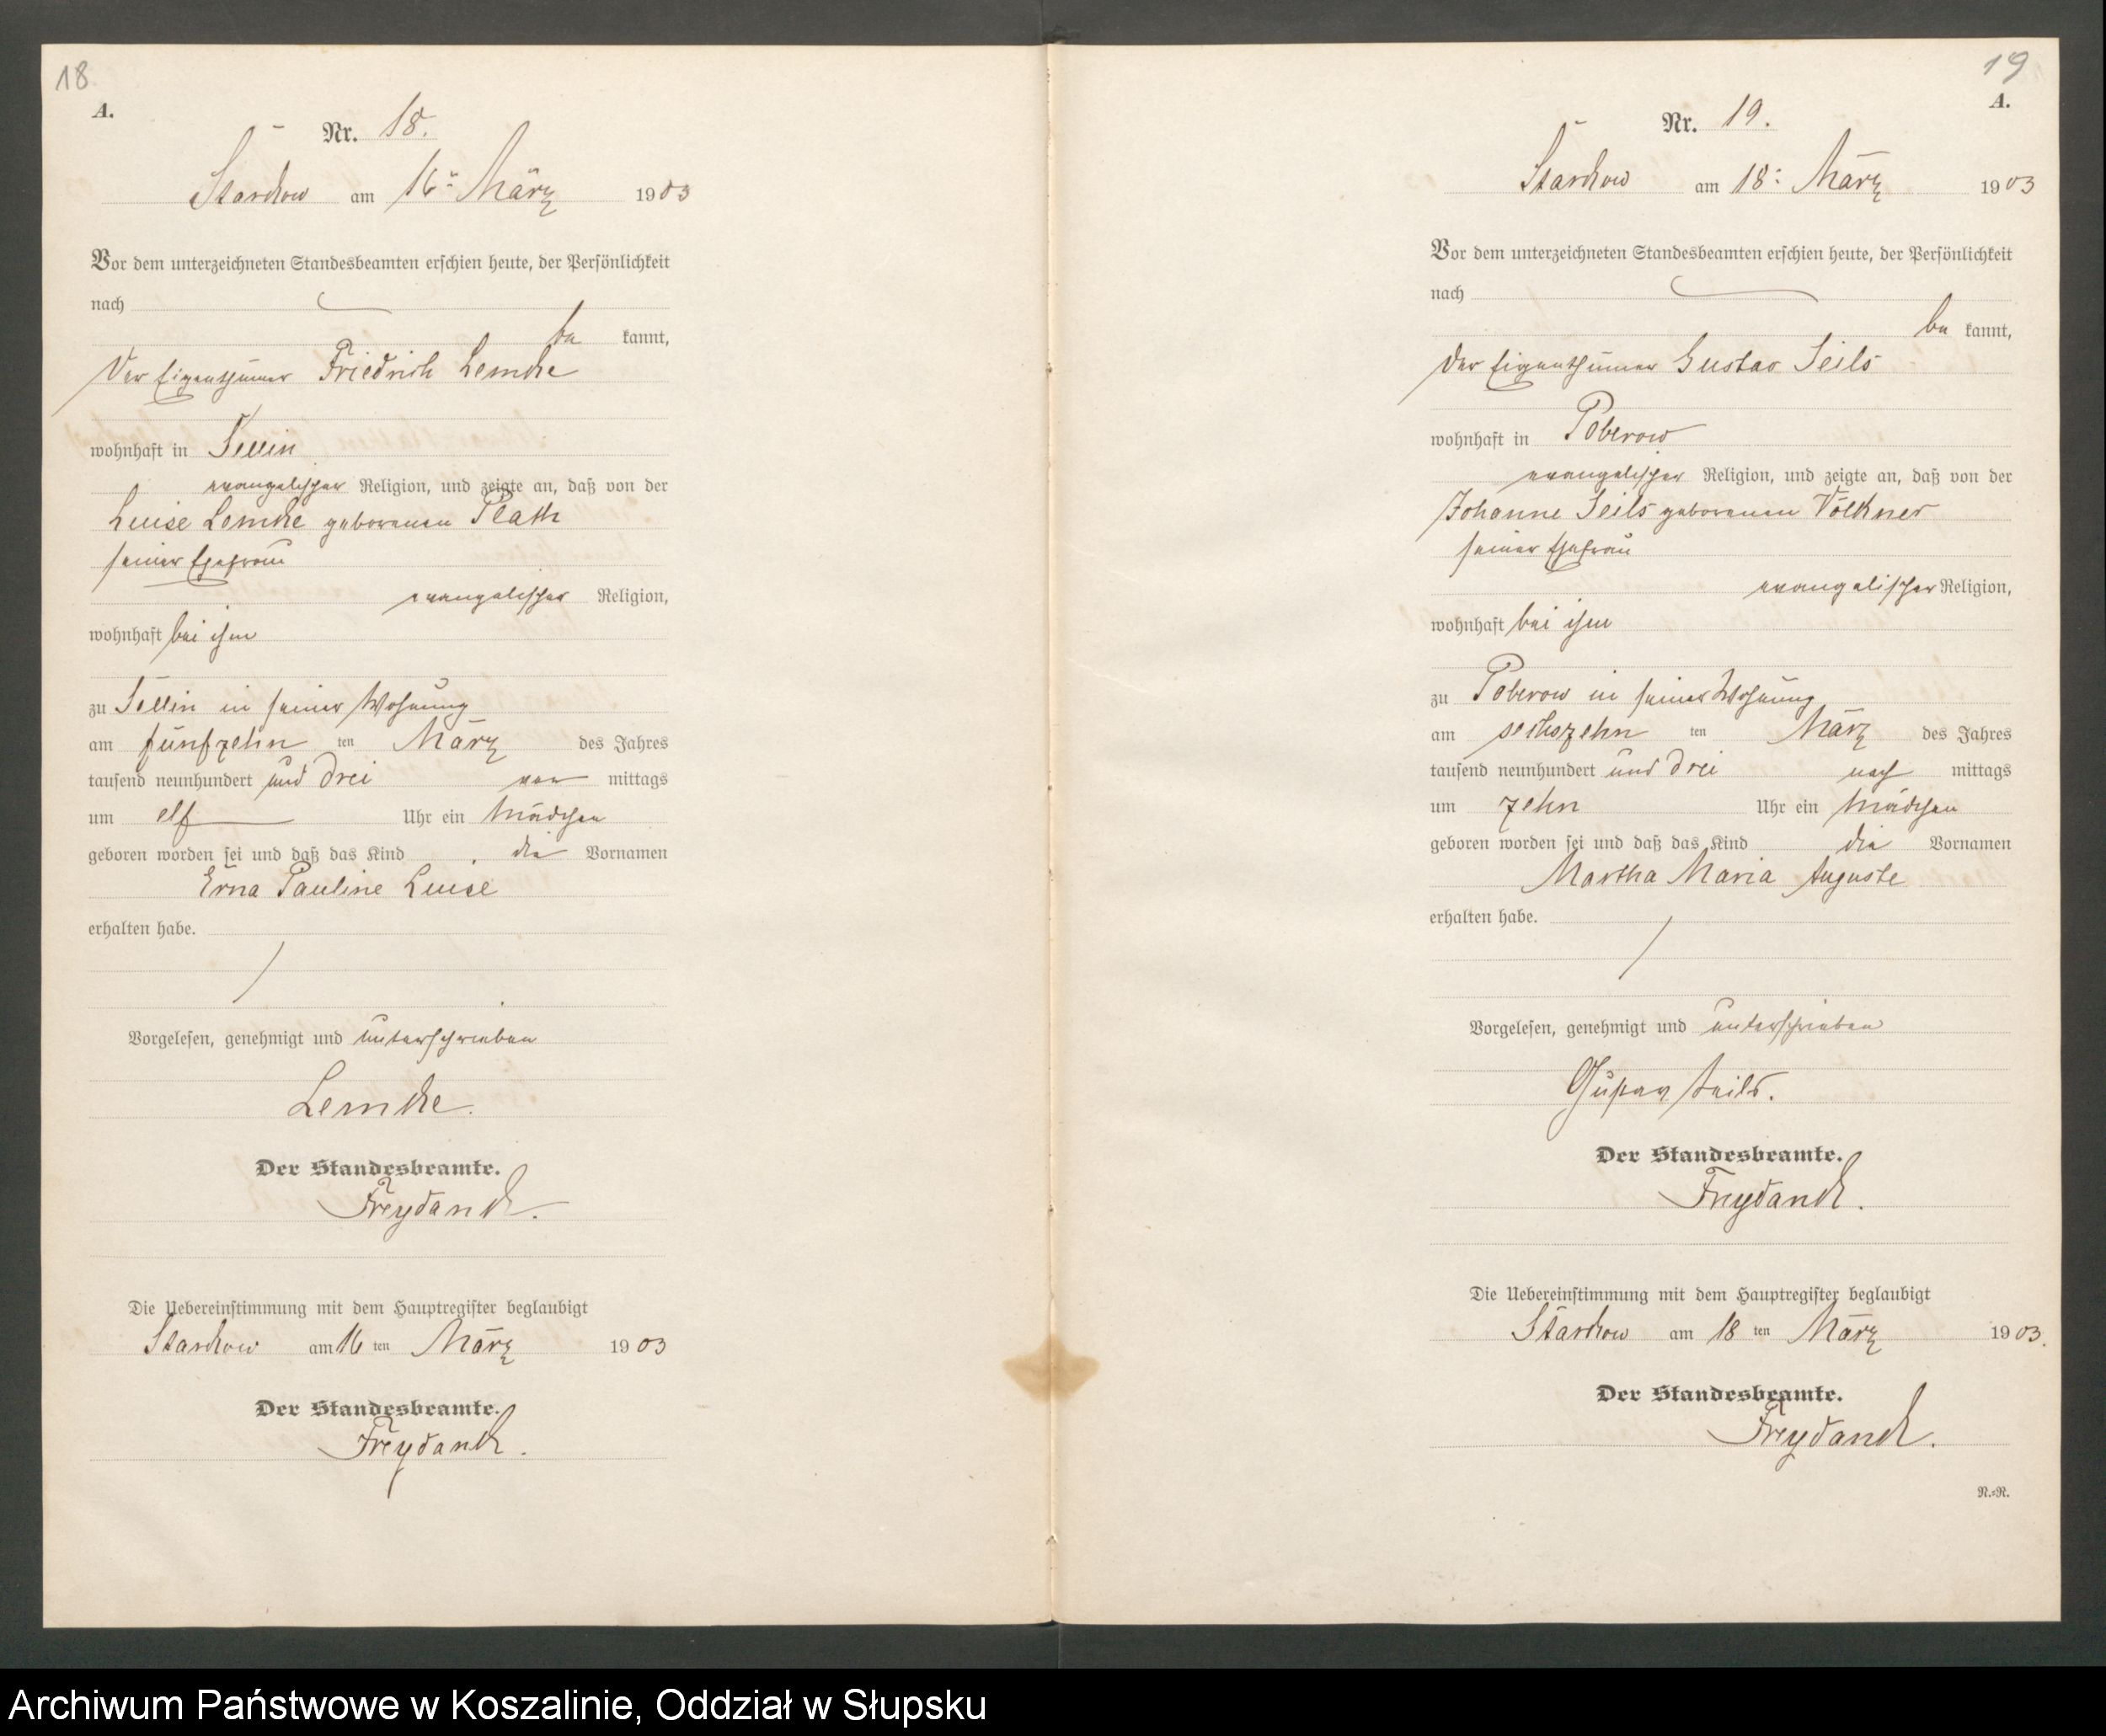 18
A.
Nr. 18.
Starckow am 16ten März 1903
Vor dem unterzeichneten Standesbeamten erschien heute, der Persönlichkeit
nach
be kannt,
Der Eigenthümer Friedrich Lemcke
wohnhaft in Sellin
evangelischer Religion, und zeigte an, daß von der
Luise Lemcke geborenen Plath
seiner Ehefrau
evangelischer Religion,
wohnhaft bei ihm
zu Sellin in seiner Wohnung
am fünfzehn ten März des Jahres
tausend neunhundert und drei vor mittags
um elf Uhr ein Mädchen
geboren worden sei und daß das Kind die Vornamen
Erna Pauline Luise
erhalten habe.
Vorgelesen, genehmigt und unterschrieben
Lemcke.
Der Standesbeamte.
Freydanck.
Die Uebereinstimmung mit dem Hauptregister beglaubigt
Starckow am 16 ten März 1903
Der Standesbeamte.
Freydanck.
19
A.
Nr. 19.
Starckow am 18: März 1903
Vor dem unterzeichneten Standesbeamten erschien heute, der Persönlichkeit
nach
be kannt,
Der Eigenthümer Gustav Seils
wohnhaft in Poberow
evangelischer Religion, und zeigte an, daß von der
Johanne Seils geborenen Völkner
seiner Ehefrau
evangelischer Religion,
wohnhaft bei ihm
zu Poberow in seiner Wohnung
am sechszehn ten März des Jahres
tausend neunhundert und drei nach mittags
um zehn Uhr ein Mädchen
geboren worden sei und daß das Kind die Vornamen
Martha Maria Auguste
erhalten habe.
Vorgelesen, genehmigt und unterschrieben
Gustav Seils.
Der Standesbeamte.
Freydanck.
Die Uebereinstimmung mit dem Hauptregister beglaubigt
Starckow am 18 ten März 1903.
Der Standesbeamte.
Freydanck.
N.=R.
Archiwum Państwowe w Koszalinie, Oddział w Słupsku